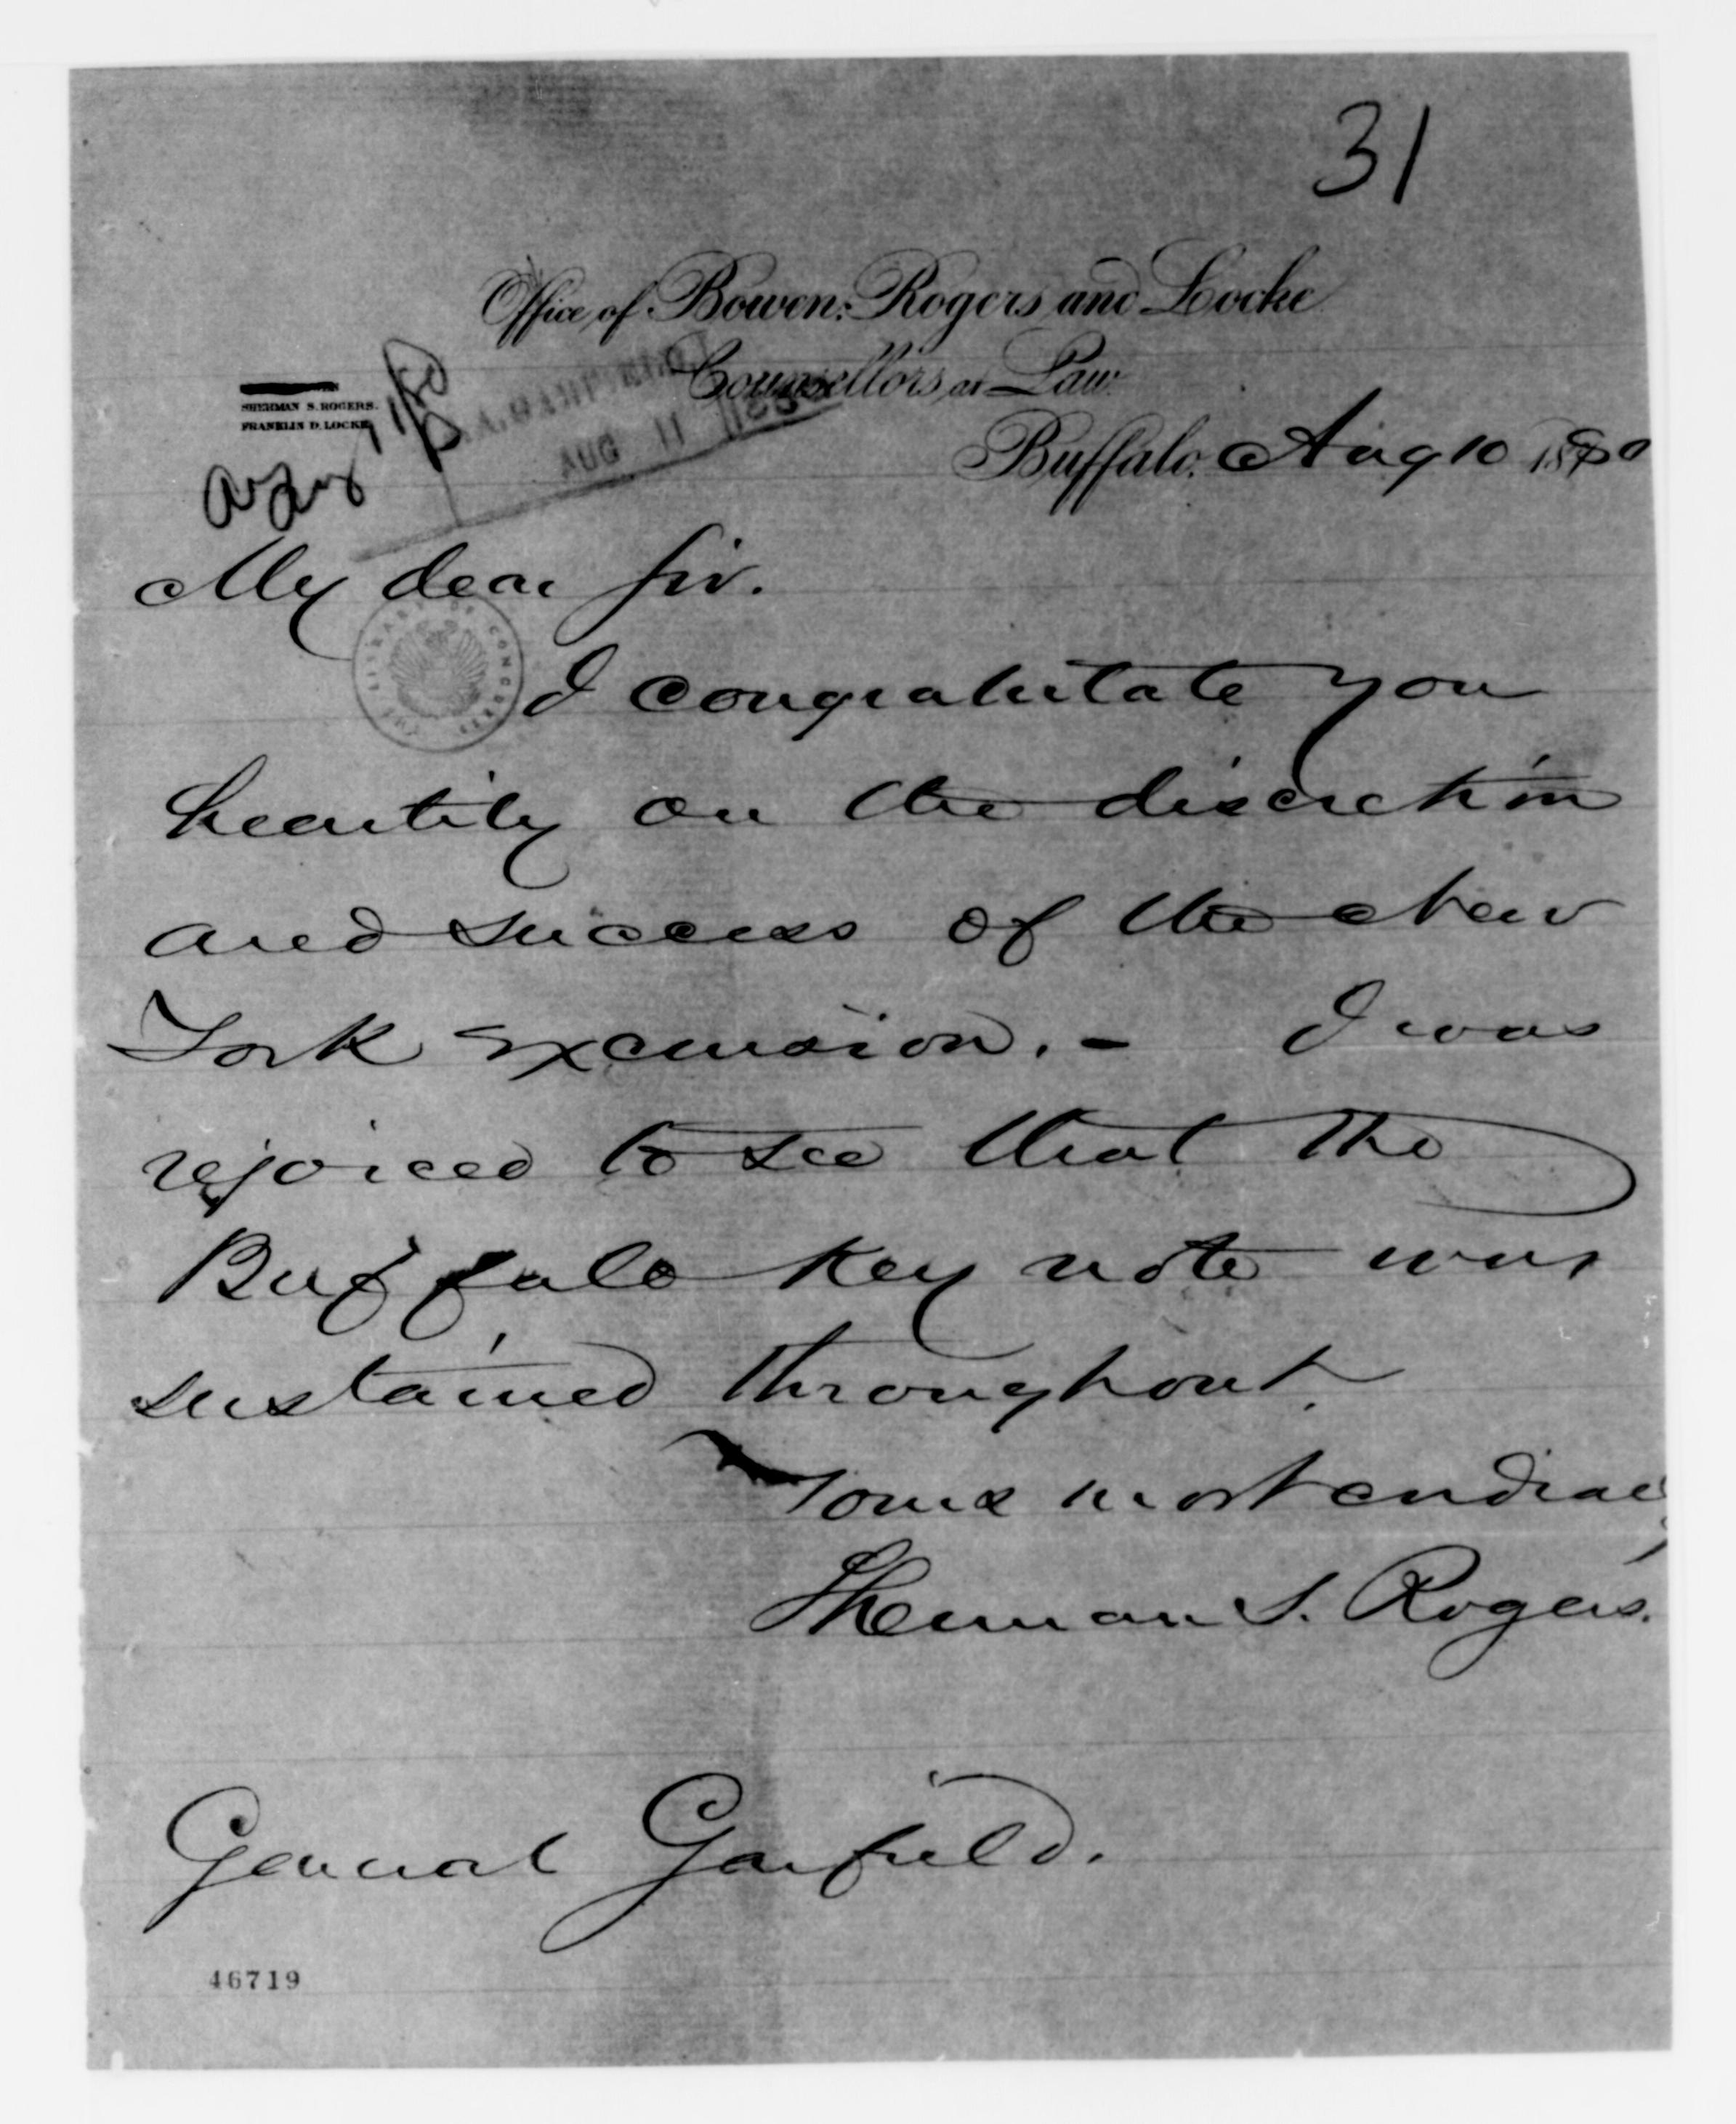 31
Office of Bowen, Rogers and Locke
Counsellors at Law
SHERMAN S. ROGERS.
FRANKLIN D. LOCKE
J. A. GARFIELD
AUG 11 1880
Buffalo, Aug 10 1880
My dear Sir.
THE LIBRARY OF CONGRESS
I congratulate you
heartily on the discretion
and success of the New
York excursion. - I was
rejoiced to see that the
Buffalo key note was
sustained throughout.
Yours most cordially
Sherman S. Rogers.
General Garfield.
46719